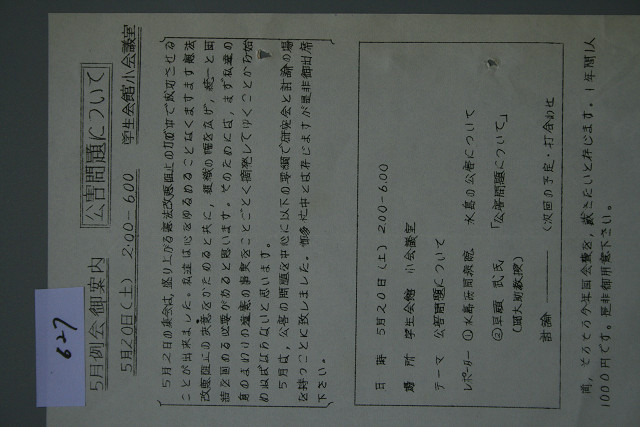 5月例会御案内 公害問題について
5月20日(土) 2:00-6:00 学生会館小会議室
5月2日の集会は、盛り上がる憲法改悪阻止の力の中で成功させる
ことが出来ました。私達は心をゆるめることなくますます憲法
改悪阻止の決意をかためると共に、組織の幅を広げ、統一と団
結を固める必要があると思います。そのためには、まず私達の
身のまわりの違憲の事実をことごとく摘発してゆくことから始
めねばならないと思います。
5月は、公害の問題を中心に以下の要綱で研究会と討論の場
を持つことに致しました。御多忙中とは存じますが是非御出席
下さい。
日 時 5月20日(土) 2:00-6:00
場 所 学生会館 小会議室
テーマ 公害問題について
レポーター ①水島協同病院 水島の公害について
② 武氏 「公害問題について」
(岡大助教授)
討論 (次回の予定・打合わせ
尚、そろそろ今年度会費を、戴きたいと存じます。1年間1人
1000円です。是非御用意下さい。
627